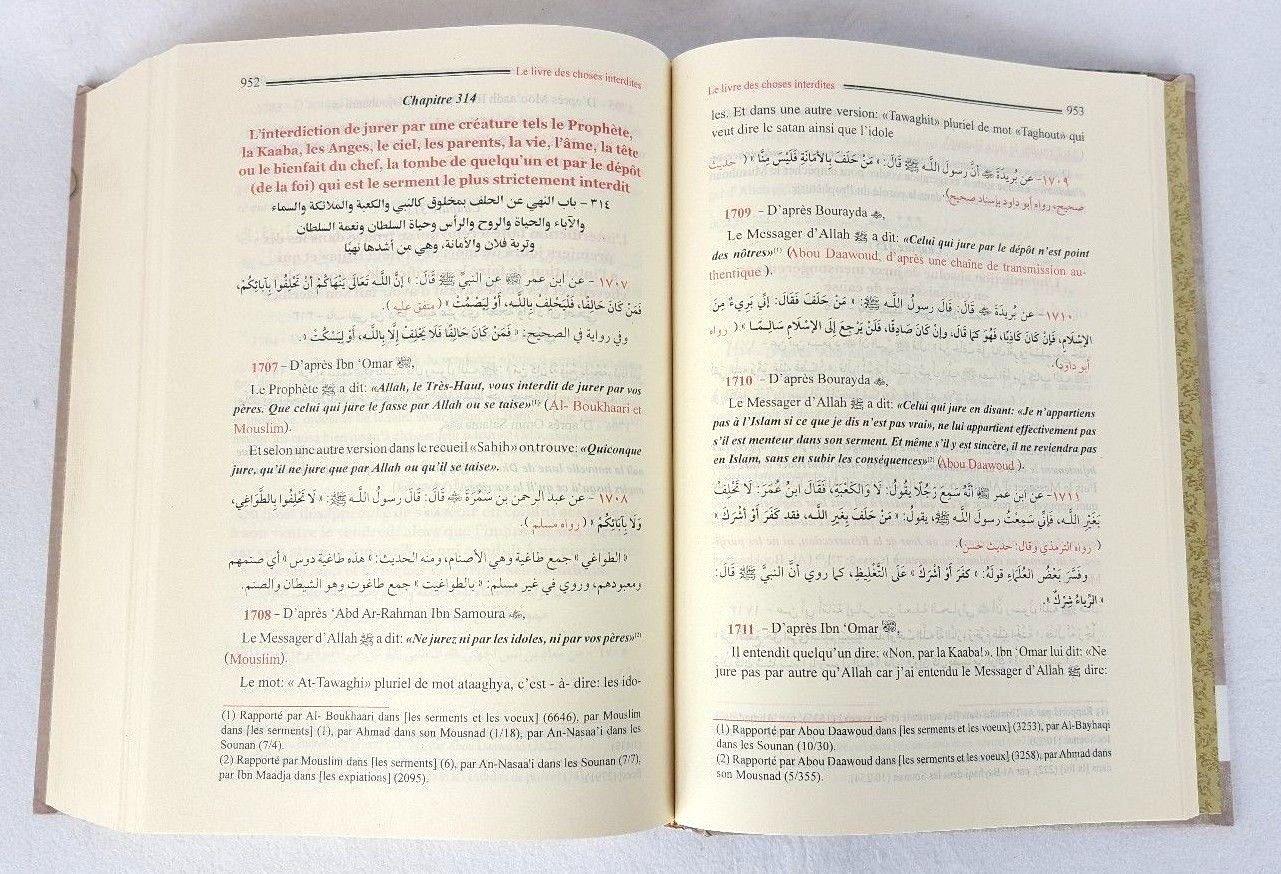 952 Le livre des choses interdites
Chapitre 314
L'interdiction de jurer par une créature tels le Prophète,
la Kaaba, les Anges, le ciel, les parents, la vie, l'âme, la tête
ou le bienfait du chef, la tombe de quelqu'un et par le dépôt
(de la foi) qui est le serment le plus strictement interdit
٣١٤ – باب النهي عن الحلف بمخلوق كالنبي والكعبة والملائكة والسماء
والآباء والحياة والروح والرأس وحياة السلطان ونعمة السلطان
وتربة فلان والأمانة، وهي من أشدها نهيًا
١٧٠٧ – عن ابن عمر ﷺ عن النبيِّ ﷺ قَالَ: «إنَّ اللَّـه تَعَالَىٰ يَنْهَاكُمْ أنْ تَحْلِفُوا بِآبَائِكُمْ،
فَمَنْ كَانَ حَالِفًا، فَلْيَحْلِفْ بِاللَّـه، أَوْ لِيَصْمُتْ» (متفق عليه).
وفي رواية في الصحيح: «فَمَنْ كَانَ حَالِفًا فَلَا يَحْلِفْ إِلَّا بِاللَّـه، أَوْ لِيَسْكُتْ»
1707 - D'après Ibn 'Omar,
Le Prophète ﷺ a dit: «Allah, le Très-Haut, vous interdit de jurer par vos
pères. Que celui qui jure le fasse par Allah ou se taise»(1) (Al- Boukhaari et
Mouslim).
Et selon une autre version dans le recueil «Sahih» on trouve: «Quiconque
jure, qu'il ne jure que par Allah ou qu'il se taise».
١٧٠٨ – عن عبد الرحمن بن سَمُرَة قَالَ: قَالَ رسول اللَّـه ﷺ: «لَا تَحْلِفُوا بِالطَّوَاغِي،
وَلَا بِآبَائِكُمْ» (رواه مسلم).
«الطواغي» جمع طاغية وهي الأصنام، ومنه الحديث: «هذه طاغية دوس» أي صنمهم
ومعبودهم، وروي في غير مسلم: «بالطواغيت» جمع طاغوت وهو الشيطان والصنم.
1708 - D'après 'Abd Ar-Rahman Ibn Samoura,
Le Messager d'Allah ﷺ a dit: «Ne jurez ni par les idoles, ni par vos pères»(2)
(Mouslim).
Le mot: « At-Tawaghi» pluriel de mot ataaghya, c'est - à- dire: les ido-
(1) Rapporté par Al- Boukhaari dans [les serments et les voeux] (6646), par Mouslim
dans [les serments] (1), par Ahmad dans son Mousnad (1/18), par An-Nasaa'i dans les
Sounan (7/4).
(2) Rapporté par Mouslim dans [les serments] (6), par An-Nasaa'i dans les Sounan (7/7),
par Ibn Maadja dans [les expiations] (2095).
Le livre des choses interdites 953
les. Et dans une autre version: «Tawaghit» pluriel de mot «Taghout» qui
veut dire le satan ainsi que l'idole
١٧٠٩ – عن بُريدَةَ أنَّ رسول اللَّـه ﷺ قَالَ: «مَنْ حَلَفَ بِالأَمَانَةِ فَلَيْسَ مِنَّا» (حديث
صحيح، رواه أبو داود بإسناد صحيح).
1709 - D'après Bourayda,
Le Messager d'Allah ﷺ a dit: «Celui qui jure par le dépôt n'est point
des nôtres»(1) (Abou Daawoud, d'après une chaîne de transmission au-
thentique ).
١٧١٠ – عن بُريدَةَ قَالَ: قَالَ رسول اللَّـه ﷺ: «مَنْ حَلَفَ فَقَالَ: إنِّي بَرِيءٌ مِنَ
الإِسْلَامِ، فَإِنْ كَانَ كَاذِبًا، فَهُوَ كَمَا قَالَ، وَإِنْ كَانَ صَادِقًا، فَلَنْ يَرْجِعَ إِلَى الإِسْلَامِ سَالِمًا» (رواه
أبو داود).
1710 - D'après Bourayda,
Le Messager d'Allah ﷺ a dit: «Celui qui jure en disant: «Je n'appartiens
pas à l'Islam si ce que je dis n'est pas vrai», ne lui appartient effectivement pas
s'il est menteur dans son serment. Et même s'il y est sincère, il ne reviendra pas
en Islam, sans en subir les conséquences»(2) (Abou Daawoud ).
١٧١١ – عن ابن عمر أنَّهُ سَمِعَ رَجُلًا يَقُولُ: لَا وَالْكَعْبَةِ، فَقَالَ ابنُ عُمَرَ: لَا تَحْلِفْ
بِغَيْرِ اللَّـه، فَإِنِّي سَمِعْتُ رسول اللَّـه ﷺ، يقولُ: «مَنْ حَلَفَ بِغَيرِ اللَّـه، فقد كَفَرَ أَوْ أَشْرَكَ»
(رواه الترمذي وقال: حديث حسن).
وفَسَّرَ بَعْضُ العُلَمَاءِ قولَهُ: «كَفَرَ أَوْ أَشْرَكَ» عَلَى التَّغْلِيظِ، كما روي أنَّ النبيَّ ﷺ قَالَ:
«الرِّيَاءُ شِرْكٌ».
1711 - D'après Ibn 'Omar,
Il entendit quelqu'un dire: «Non, par la Kaaba!», Ibn 'Omar lui dit: «Ne
jure pas par autre qu'Allah car j'ai entendu le Messager d'Allah ﷺ dire:
(1) Rapporté par Abou Daawoud dans [les serments et les voeux] (3253), par Al-Bayhaqi
dans les Sounan (10/30).
(2) Rapporté par Abou Daawoud dans [les serments et les voeux] (3258), par Ahmad dans
son Mousnad (5/355).